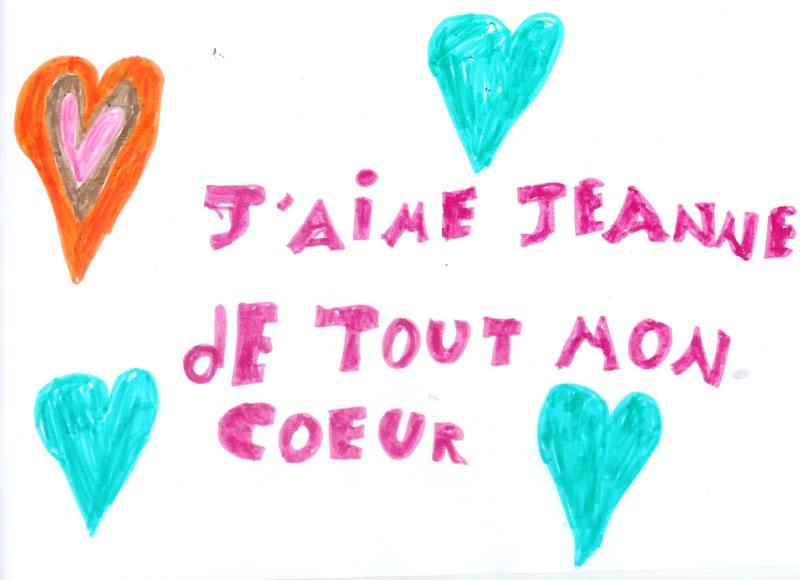 J'AiME JEANNE
dE TOUT MON
COEUR